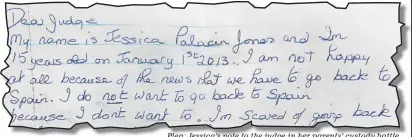 Dear Judge
My name is Jessica Palacin Jones and Im
15 years old on January 1st 2013. I am not happy
at all because of the news that we have to go back to
Spain. I do not want to go back to Spain
because I dont want to. Im scared of going back
Plea: Jessica's note to the judge in her parents' custody battle